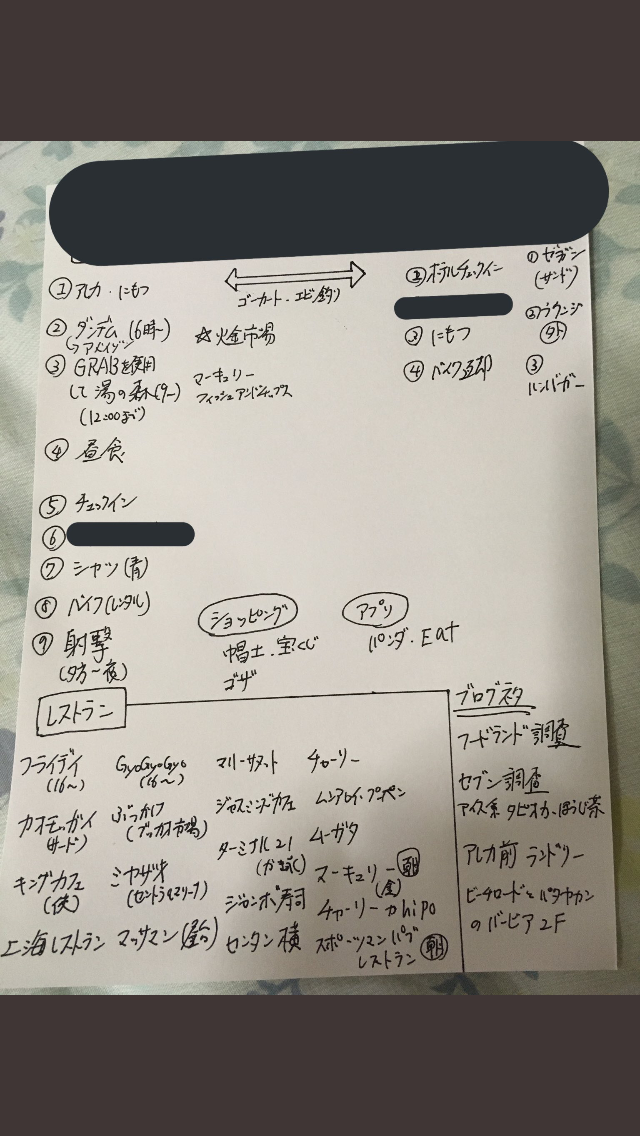 ① アレカ・にもつ
② ダンデム (6時〜)
↳アメイゾン
③ GRABを使用
して 湯の森(9〜)
(12:00まで)
④ 昼食
⑤ チェックイン
⑥
⑦ シャツ(青)
⑧ バイク(レンタル)
⑨ 射撃
(夕方〜夜)
ゴーカート・エビ釣り
☆火金市場
マーキュリー
フィッシュアンドチップス
ホテルチェックイン
③ にもつ
④ バイク返却
①セブン
(サンド)
②ラウンジ
外
③
ハンバーガー
ショッピング
帽土・宝くじ
ゴザ
アプリ
パンダ・Eat
レストラン
フライデイ
(16〜)
カオモッガイ
(サード)
キングカフェ
(夜)
上海レストラン
GyoGyoGyo
(16〜)
ぶっかけ
(ブッカオ市場)
ミヤザキ
(セントラルマリーナ)
マッサマン(屋台)
マリーサヌット
ジャスミンズカフェ
ターミナル21
(かまくし)
ジャンボ寿司
センタン横
チャーリー
ムンアロイ・プーペン
ムーガタ
マーキュリー 朝
(金)
チャーリーかhipo
スポーツマンパブ
レストラン 朝
ブログネタ
フードランド調査
セブン調査
アイス系 タピオカ・ほうじ茶
アレカ前 ランドリー
ビーチロードとパタヤカン
のバービア 2F